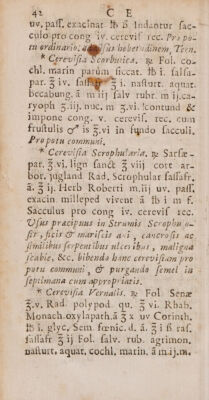 42 C E
uv. pass. exacinat ℔ ẞ Indantur sac-
culo pro cong iv. cerevis rec. Pro po-
tu ordinario;
* Cerevisia Scorbutica. ℞ Fol. co-
chl. marin parùm siccat. ℔ i. salsa-
par. ℥ iv. sassafr ℥ i. nasturt. aquat.
becabung. â m iij salv rubr. m ij, ca-
ryoph ℥ iij. nuc. m ℥ vi. contund &
impone cong v. cerevis. rec. cum
frustulis ♂ is ℥ vi in fundo sacculi.
Pro potu communi.
* Cerevisia Scrophularia. ℞ Sarsæ-
par. ℥ vi. lign sanct ℥ viij cort ar-
bor. jugland Rad. Scrophular sassafr,
â. ℥ ij. Herb Roberti m. iij uv. pass.
exacin milleped vivent â ℔ i m f.
Sacculus pro cong iv. cerevis rec.
Usus præcipuus in Strumis Scrophu o-
sit, ficis & mariscis ani, cancrosis ac
similibus serpentibus ulceribus, maligna
scabie, &c. bibendo hanc cerevisiam pro
potu communi, & purgando semel in
septimana cum appropriatis.
* Cerevisia Vernalis. ℞ Fol Senæ
℥.v. Rad. polypod qu. ℥ vi Rhab.
Monach. oxylapath. â ℥ x uv Corinth.
℔ i. glyc, Sem fœnic. d. â. ℥ i ß ras.
sassafr ℥ ij Fol. salv. rub. agrimon.
nasturt. aquat. cochl. marin. â m. ij. m.